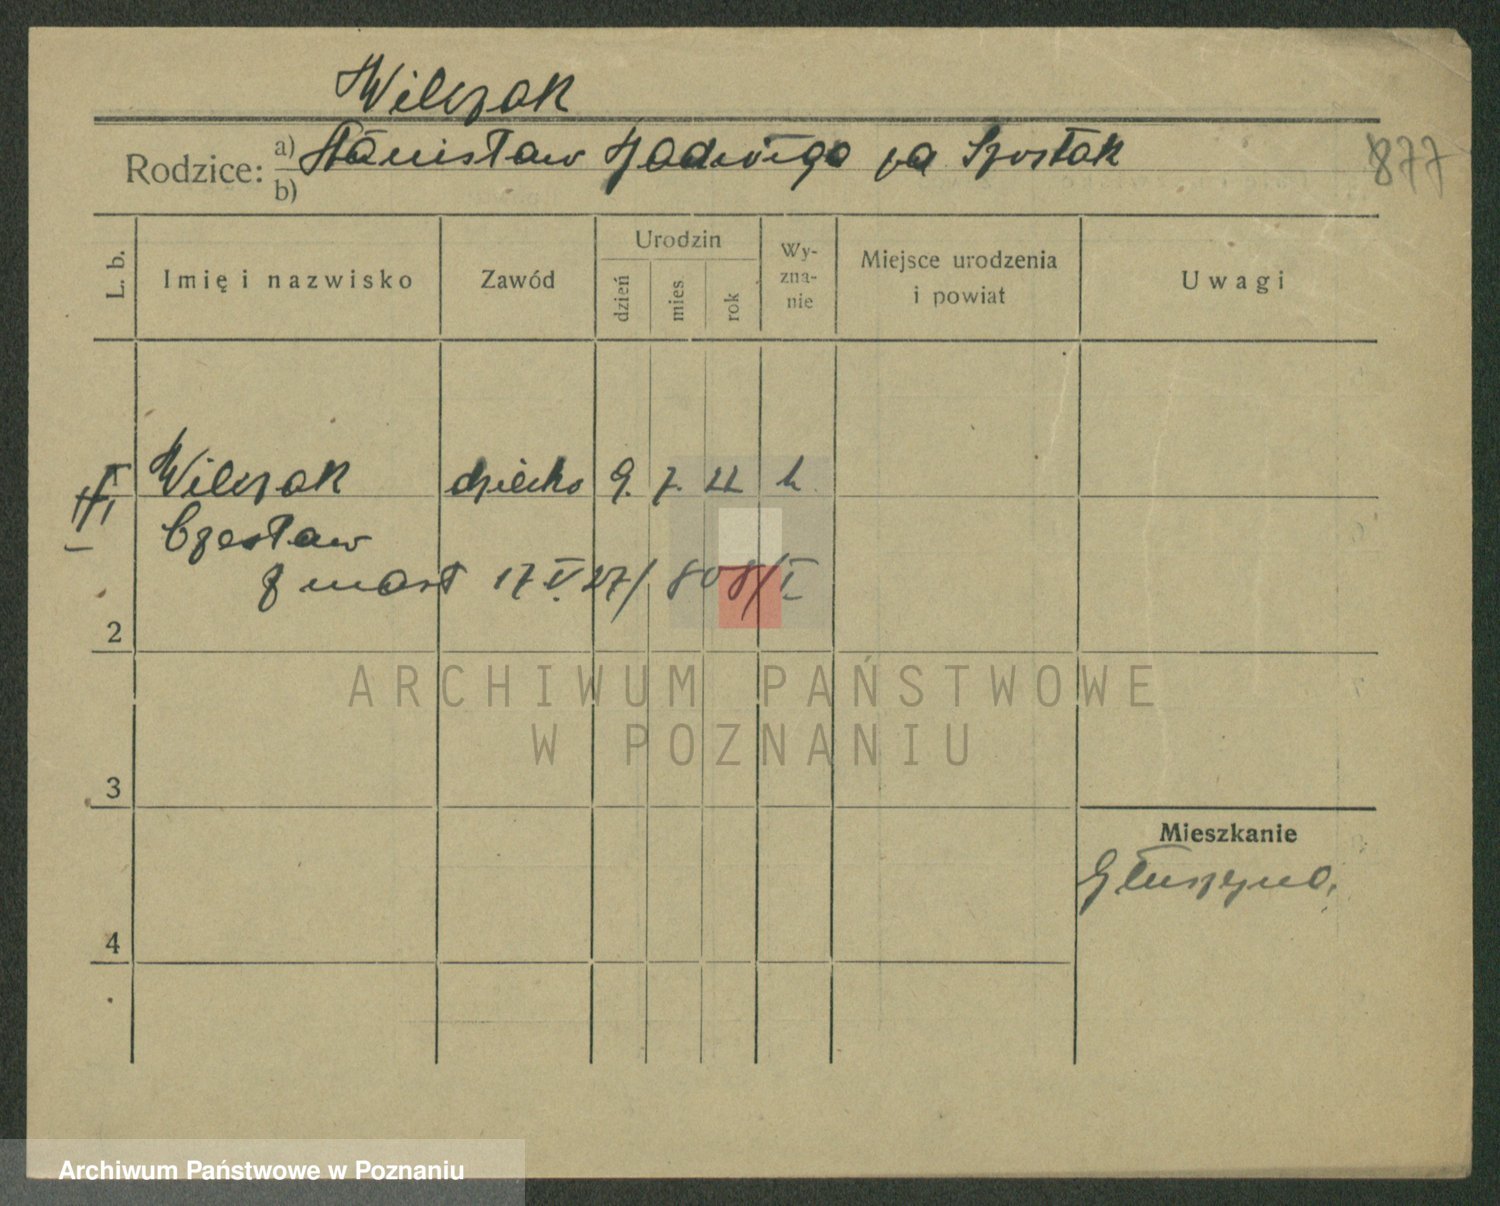 Wilczak
Rodzice: a) Stanisław Jadwiga za Szostak
b)
877
L. b.
Imię i nazwisko
Zawód
Urodzin
dzień
mies.
rok
Wy-
zna-
nie
Miejsce urodzenia
i powiat
Uwagi
Wilczak dziecko 9. 7. 22 k
Czesław
zmarł 17 V. 27/ 808/I
2
ARCHIWUM PAŃSTWOWE
W POZNANIU
3
Mieszkanie
Głuszyna,
4
Archiwum Państwowe w Poznaniu